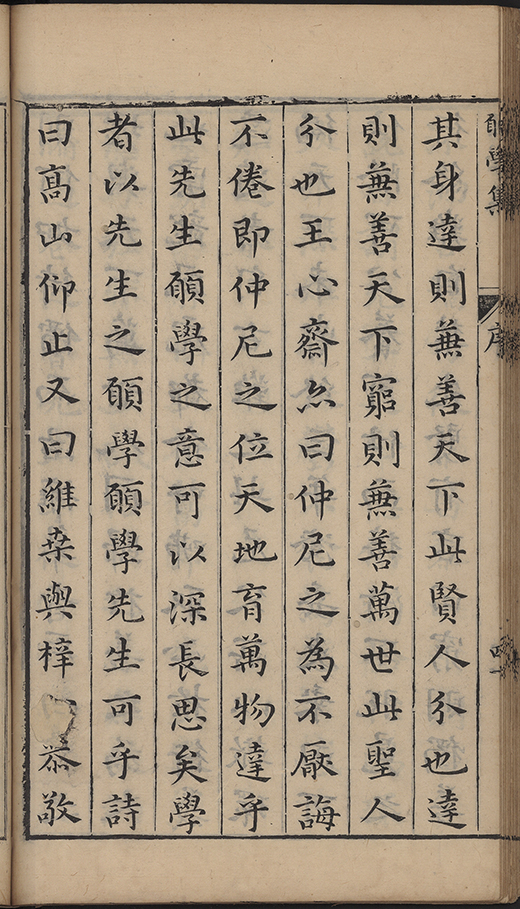 願學集
序
四
其身達則蒹善天下此賢人分也達
則蒹善天下窮則蒹善萬世此聖人
分也王心齋亦曰仲尼之為不厭誨
不倦即仲尼之位天地育萬物達乎
此先生願學之意可以深長思矣學
者以先生之願學願學先生可乎詩
曰高山仰止又曰維桒與梓 恭敬